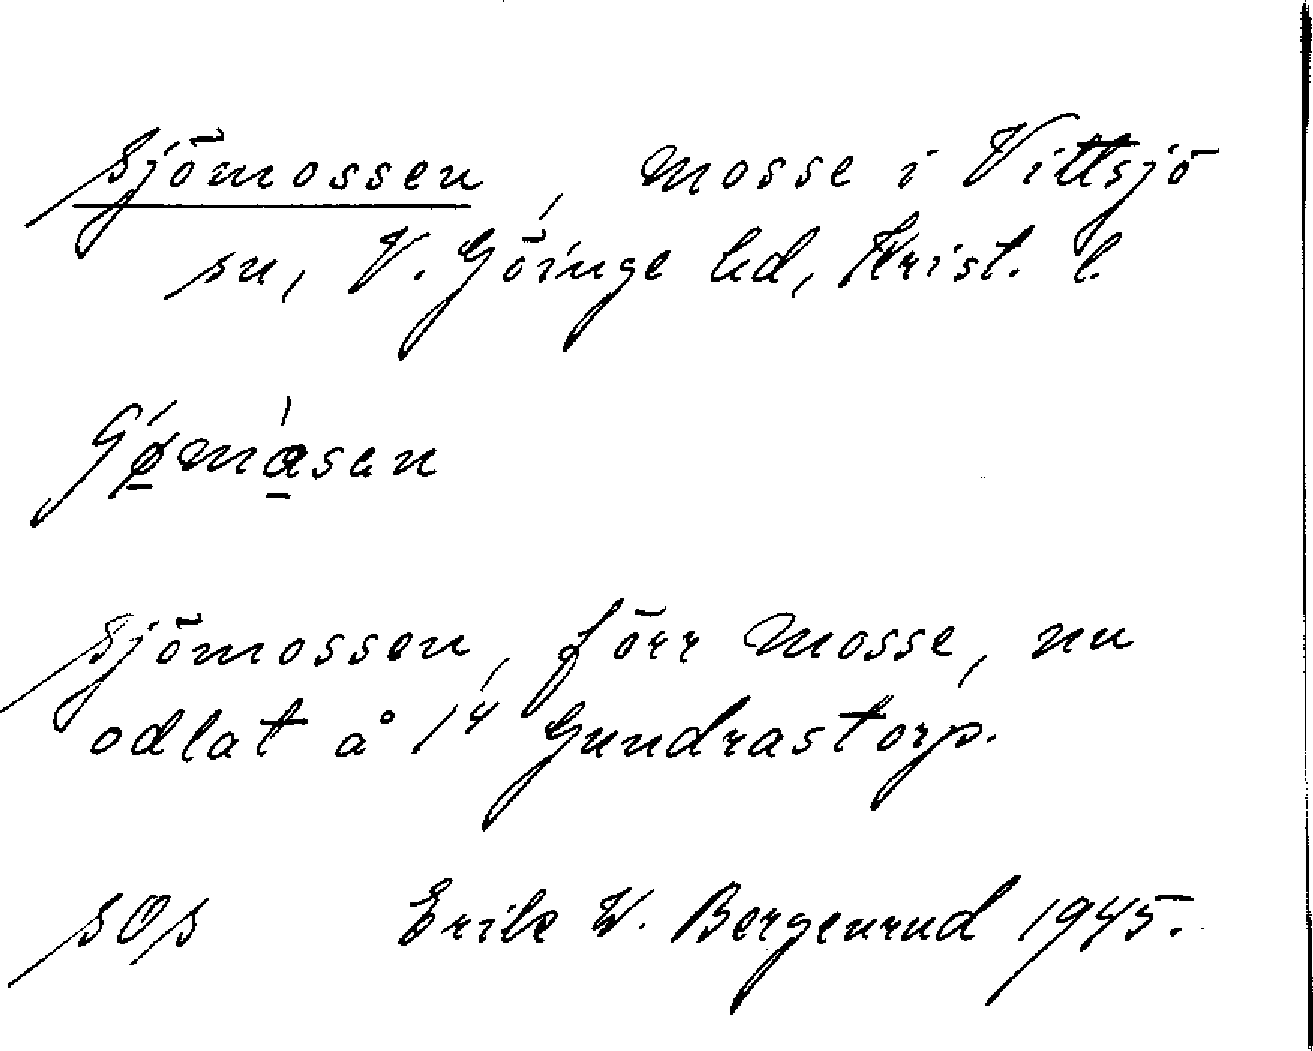 Sjömossen, mosse i Vittsjö
sn, V. Göinge hd, Krist. l.
Sjömossen, förr mosse, nu
odlat å 1⁴ Gundrastorp.
SOS Erik W. Bergenrud 1945.